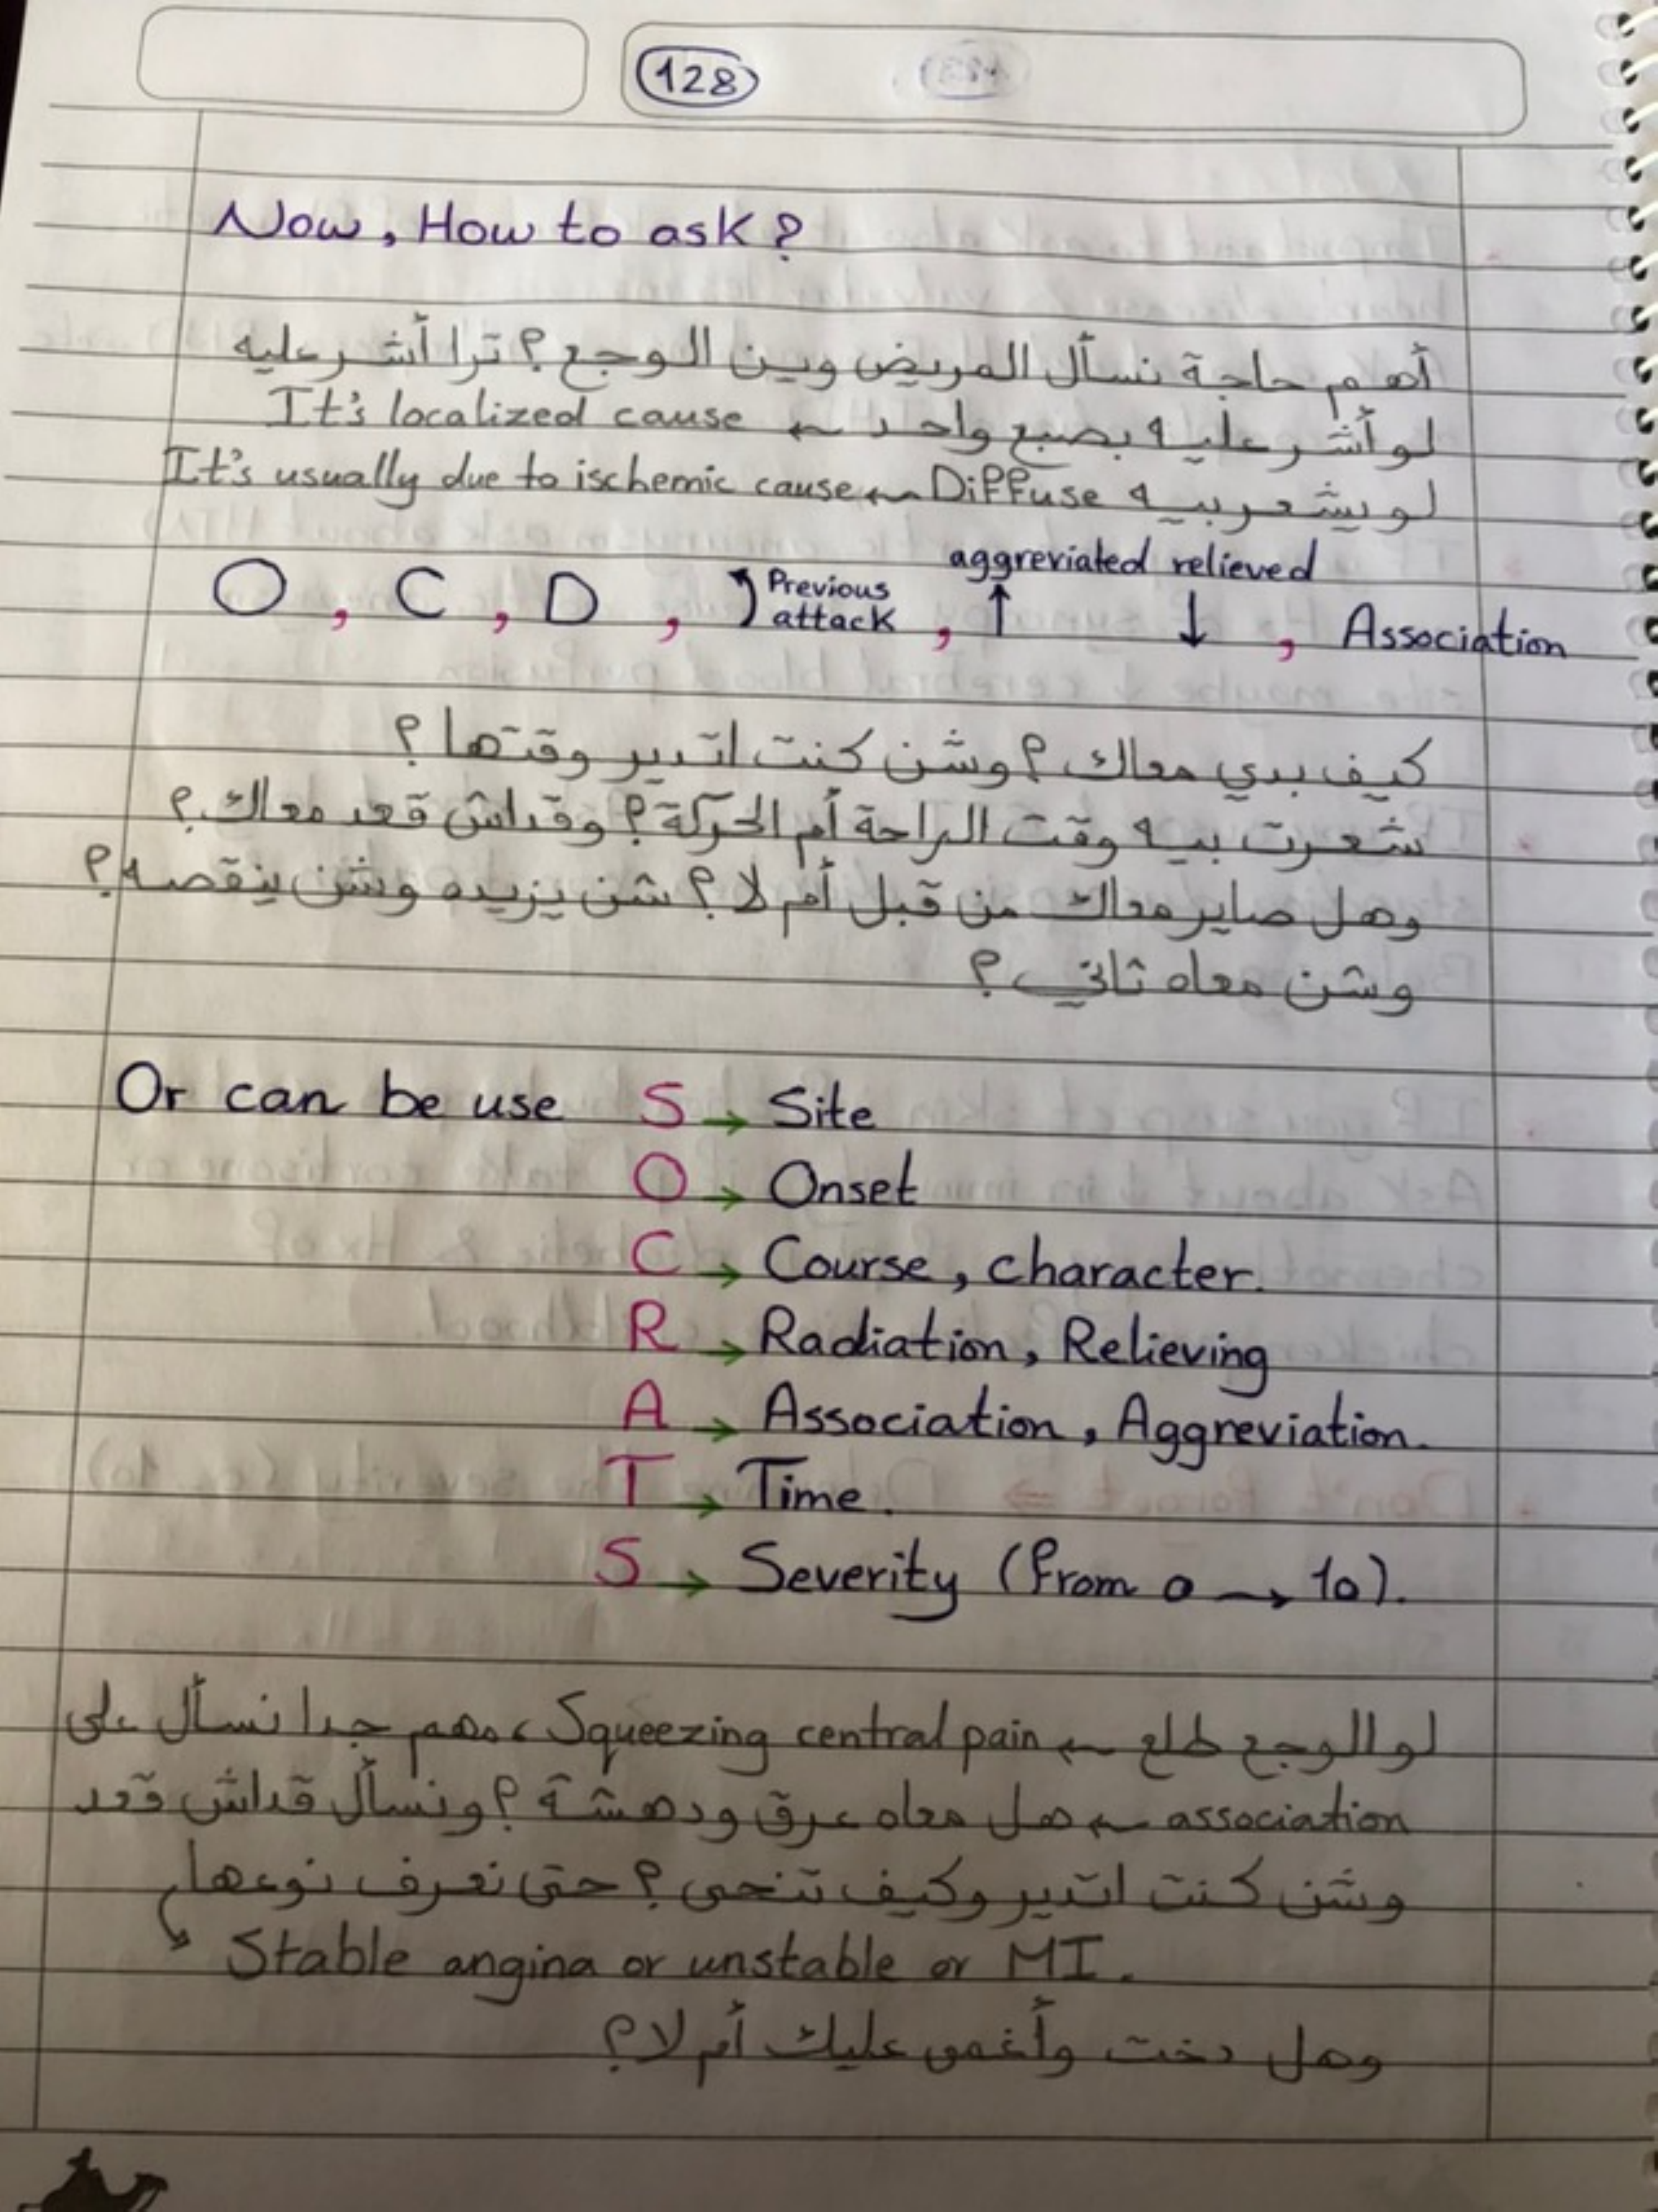 128
Now, How to ask?
أهم حاجة نسأل المريض وين الوجع؟ ترا أشر عليه
لو أشر عليه بصبع واحد ← It's localized cause
لو يشعر بيه Diffuse ← It's usually due to ischemic cause
aggreviated relieved
O, C, D, Previous attack, ↑ ↓, Association
كيف بدي معاك؟ وشن كنت اتدير وقتها؟
شعرت بيه وقت الراحة أم الحركة؟ وقداش قعد معاك؟
وهل صاير معاك من قبل أم لا؟ شن يزيده وشن ينقصه؟
وشن معاه ثاني؟
Or can be use S → Site
O → Onset
C → Course, character.
R → Radiation, Relieving
A → Association, Aggreviation.
T → Time.
S → Severity (from 0 → 10).
لو الوجع طلع ← Squeezing central pain، مهم جدا نسأل على
association ← هل معاه عرق ودهشة؟ ونسأل قداش قعد
وشن كنت اتدير وكيف تنحى؟ حتى نعرف نوعها
↘ Stable angina or unstable or MI.
وهل دخت وأغمى عليك أم لا؟